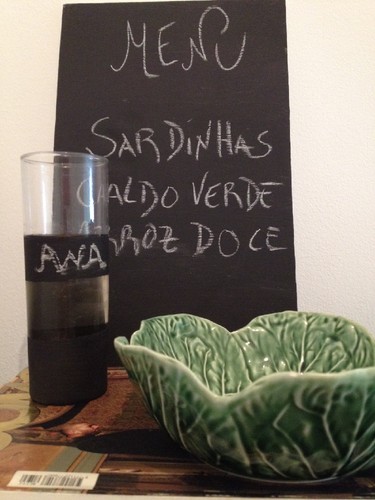 MENU
SARDINHAS
CALDO VERDE
ARROZ DOCE
AWA